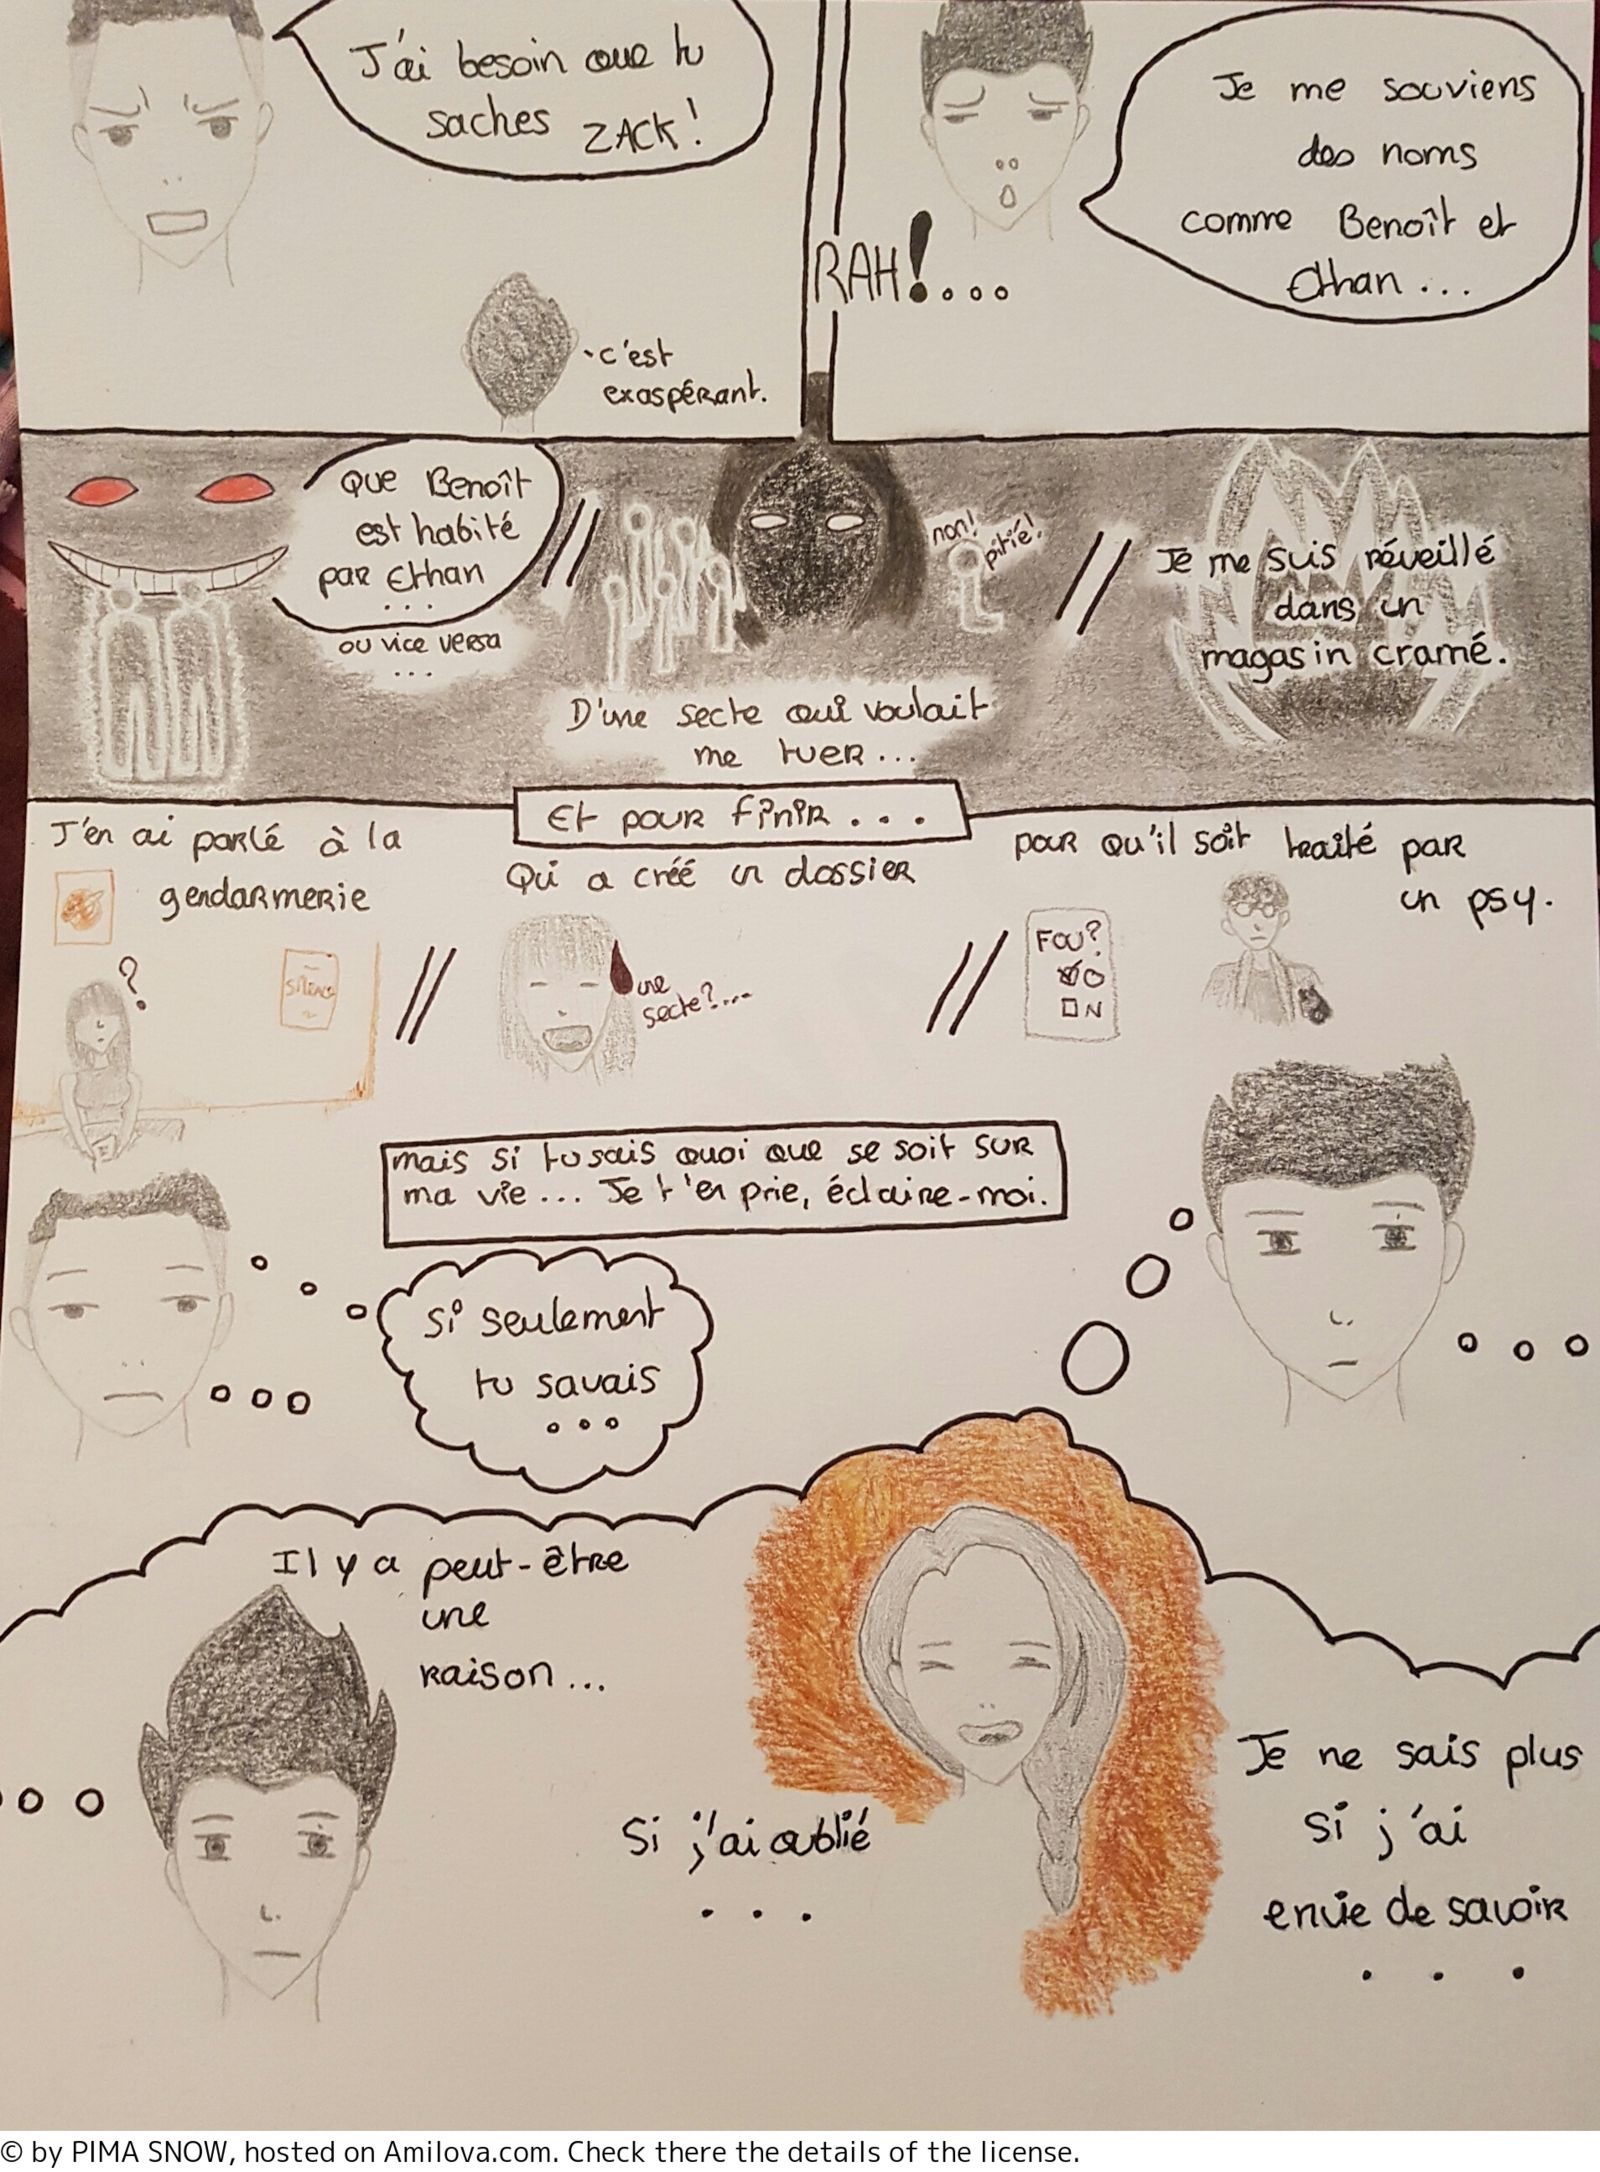 J'ai besoin que tu
saches ZACK!
c'est
exaspérant.
Je me souviens
des noms
comme Benoît et
Ethan...
RAH!...
Que Benoît
est habité
par Ethan
...
ou vice versa
...
non!
pitié!
D'une secte qui voulait
me tuer...
Je me suis réveillé
dans un
magasin cramé.
Et pour finir...
J'en ai parlé à la
gendarmerie
?
SILENCE
Qui a créé un dossier
une
secte?...
pour qu'il soit traité par
un psy.
FOU?
O
N
mais si tu sais quoi que se soit sur
ma vie... Je t'en prie, éclaire-moi.
si seulement
tu savais
...
...
...
Il y a peut-être
une
raison...
Si j'ai oublié
...
Je ne sais plus
si j'ai
envie de savoir
...
© by PIMA SNOW, hosted on Amilova.com. Check there the details of the license.